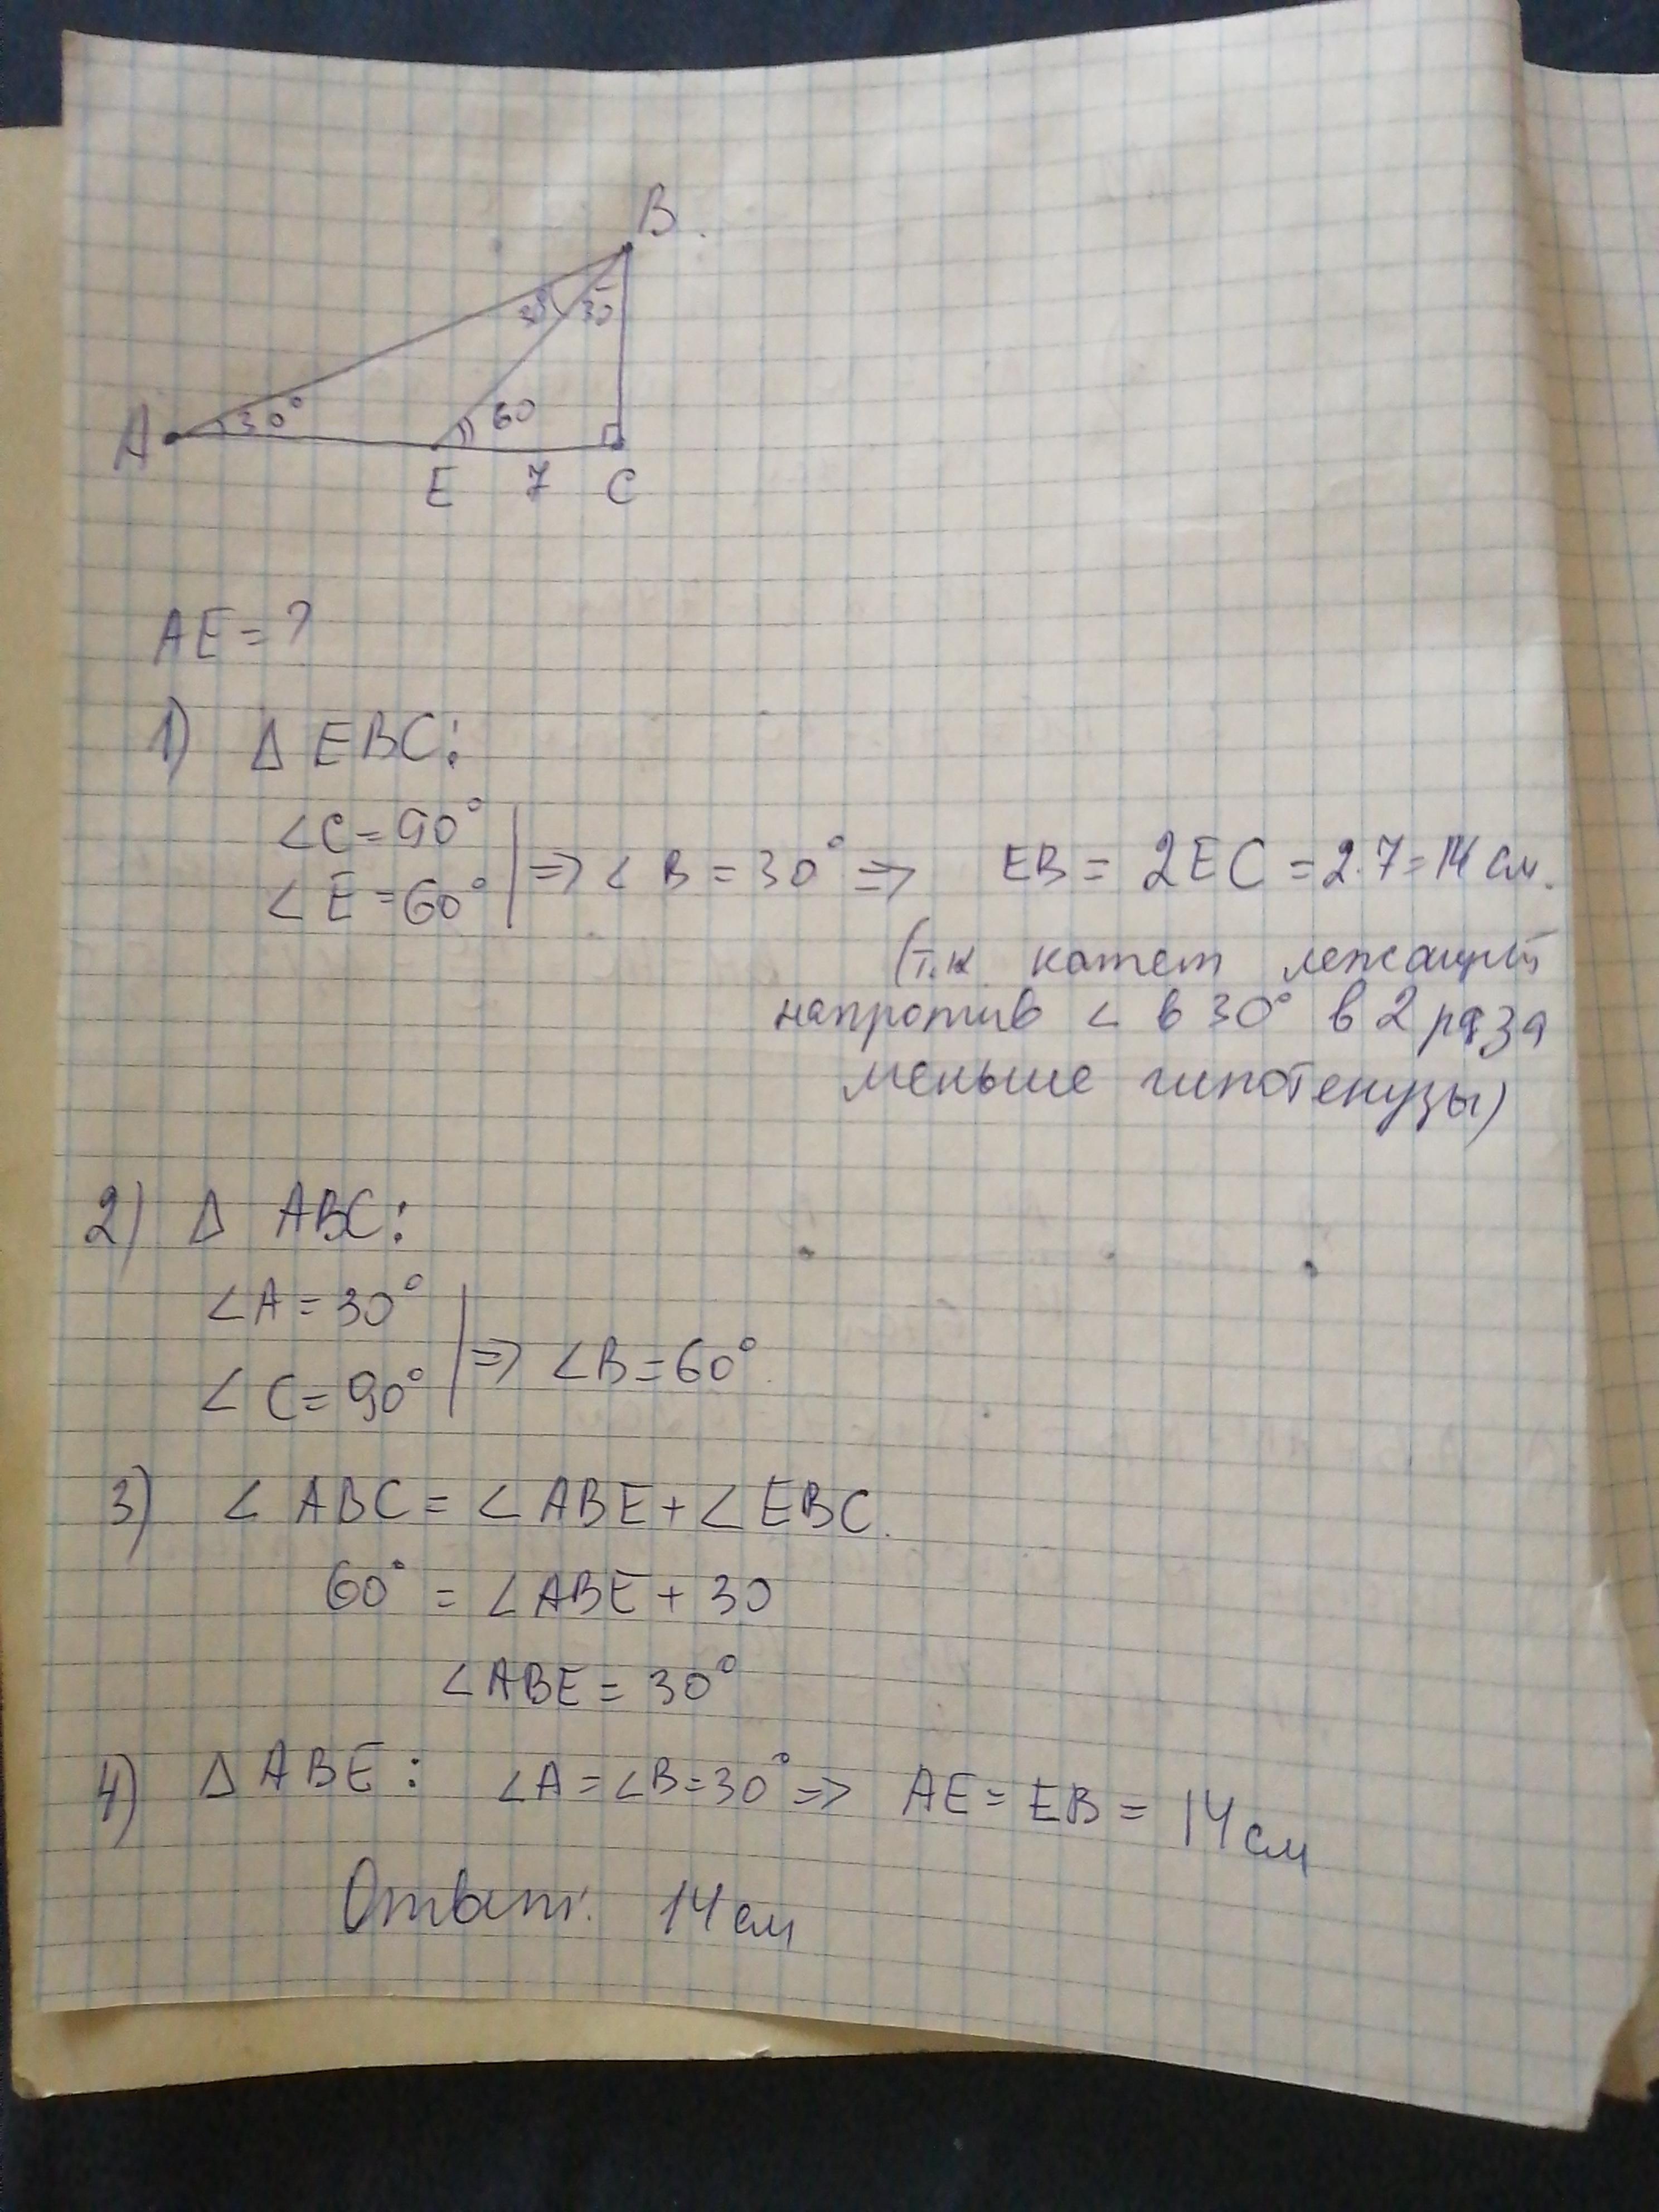 B
30° 30
A 30° 60
E 7 C
AE = ?
1) Δ EBC:
∠C = 90°
∠E = 60° | => ∠B = 30° => EB = 2EC = 2·7 = 14 см.
(т.к катет лежащий
напротив ∠ в 30° в 2 раза
меньше гипотенузы)
2) Δ ABC:
∠A = 30°
∠C = 90° | => ∠B = 60°
3) ∠ABC = ∠ABE + ∠EBC.
60° = ∠ABE + 30
∠ABE = 30°
4) ΔABE: ∠A = ∠B = 30° => AE = EB = 14 см
Ответ: 14 см